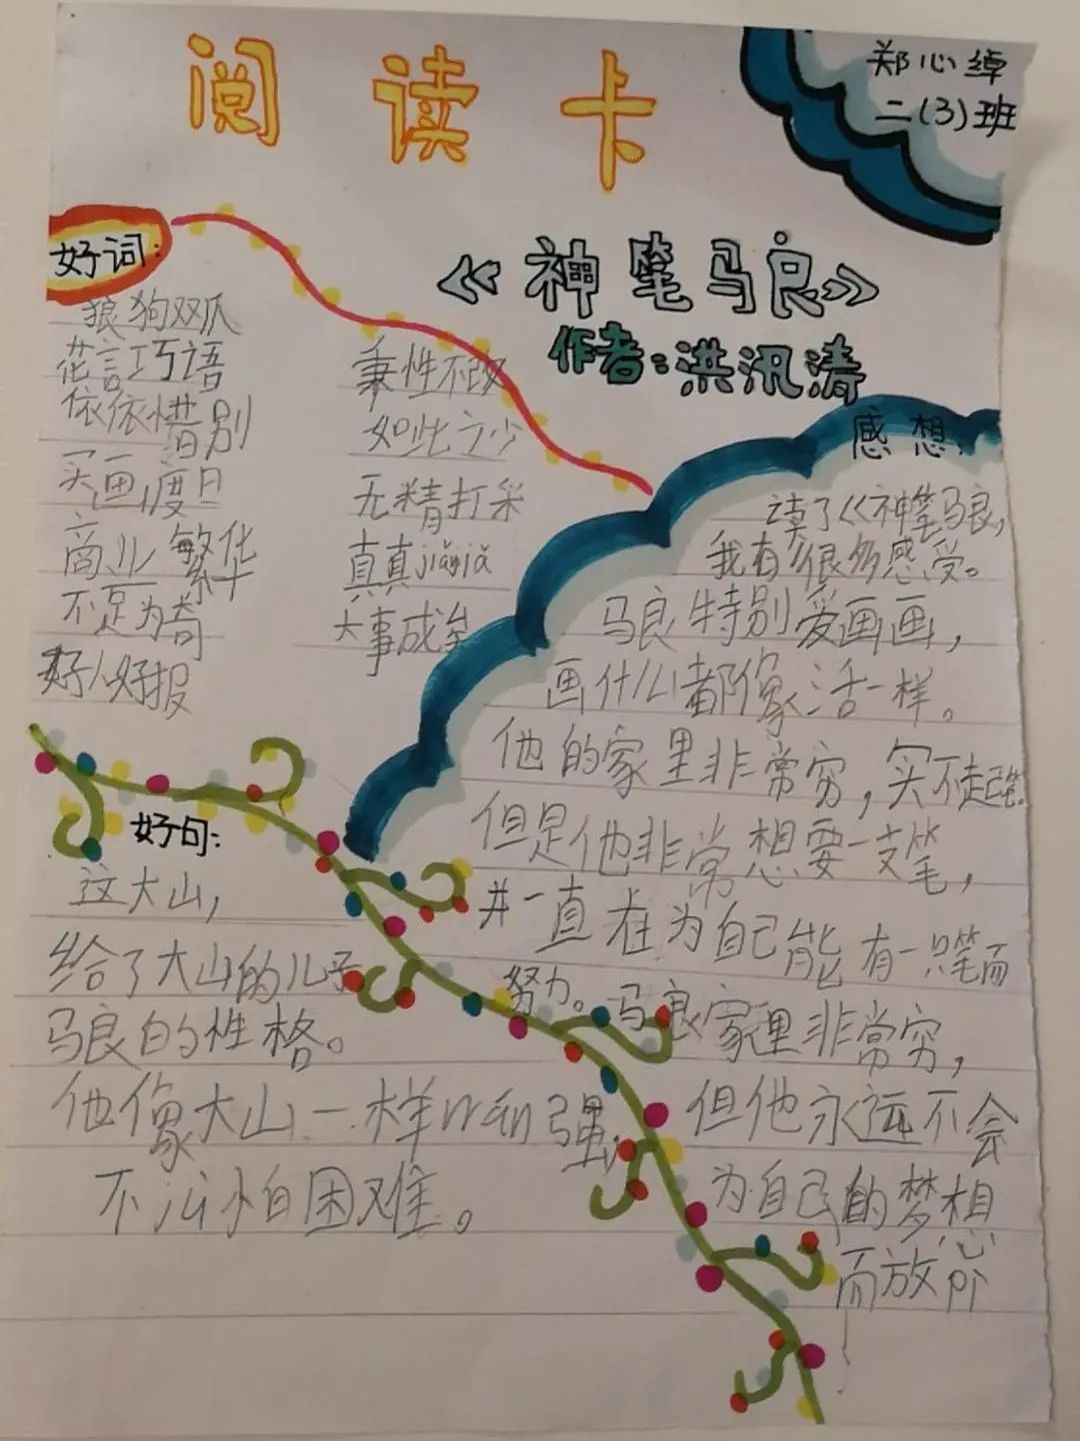 阅读卡
郑心绰
二(3)班
《神笔马良》
作者:洪汛涛
好词:
狼狗双爪
花言巧语
依依惜别
买画度日
商业繁华
不足为奇
好人好报
秉性不改
如此之少
无精打采
真真jiǎjiǎ
大事成矣
感想:
读了《神笔马良,
我有很多感受。
马良特别爱画画,
画什么都像活一样。
他的家里非常穷,买不起笔
但是他非常想要一支笔,
并一直在为自己能有一只笔而
努力。马良家里非常穷,
但他永远不会
为自己的梦想
而放
好句:
这大山,
给了大山的儿子
马良的性格。
他像大山一样 强,
不 怕困难。